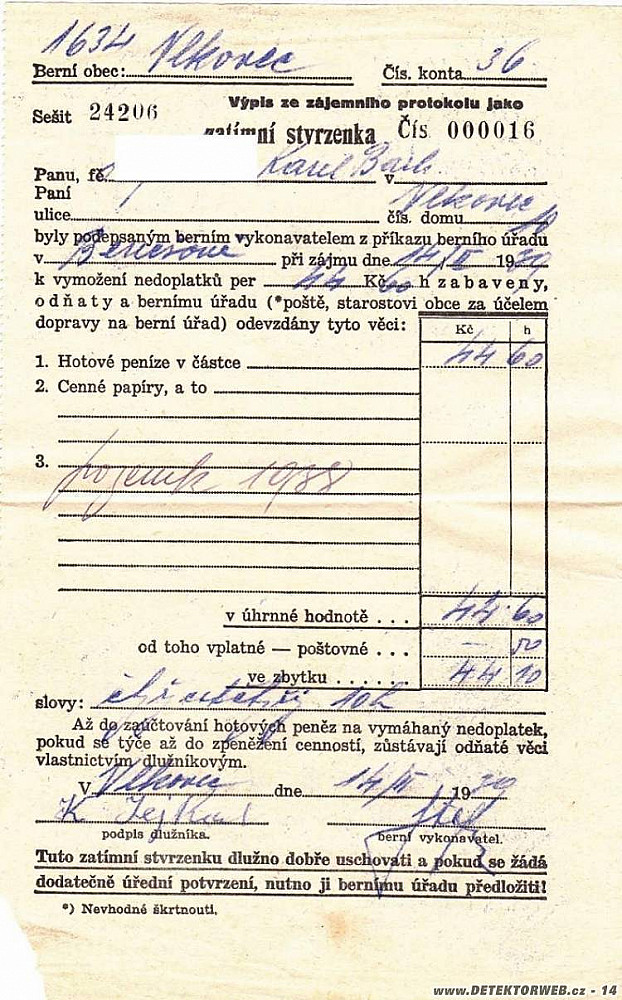 1634 Vlkovec
Berní obec: Čís. konta 36
Sešit 24206 Výpis ze zájemního protokolu jako
zatímní stvrzenka Čís 000016
Panu, fě Karel v
Paní Vlkovec
ulice čís. domu
byly podepsaným berním vykonavatelem z příkazu berního úřadu
v při zájmu dne 14/II 1939
k vymožení nedoplatků per 44 Kč 60 h zabaveny,
odňaty a bernímu úřadu (*poště, starostovi obce za účelem
dopravy na berní úřad) odevzdány tyto věci:
Kč h
1. Hotové peníze v částce 44 60
2. Cenné papíry, a to
3.
1938
v úhrnné hodnotě . . . 44 60
od toho vplatné — poštovné . . . — 50
ve zbytku . . . . . 44 10
slovy: 10h
Až do zaúčtování hotových peněz na vymáhaný nedoplatek,
pokud se týče až do zpeněžení cenností, zůstávají odňaté věci
vlastnictvím dlužníkovým.
V Vlkovec dne 14/II 1939
podpis dlužníka. berní vykonavatel.
Tuto zatímní stvrzenku dlužno dobře uschovati a pokud se žádá
dodatečně úřední potvrzení, nutno ji bernímu úřadu předložiti!
*) Nevhodné škrtnouti.
www.DETEKTORWEB.cz - 14